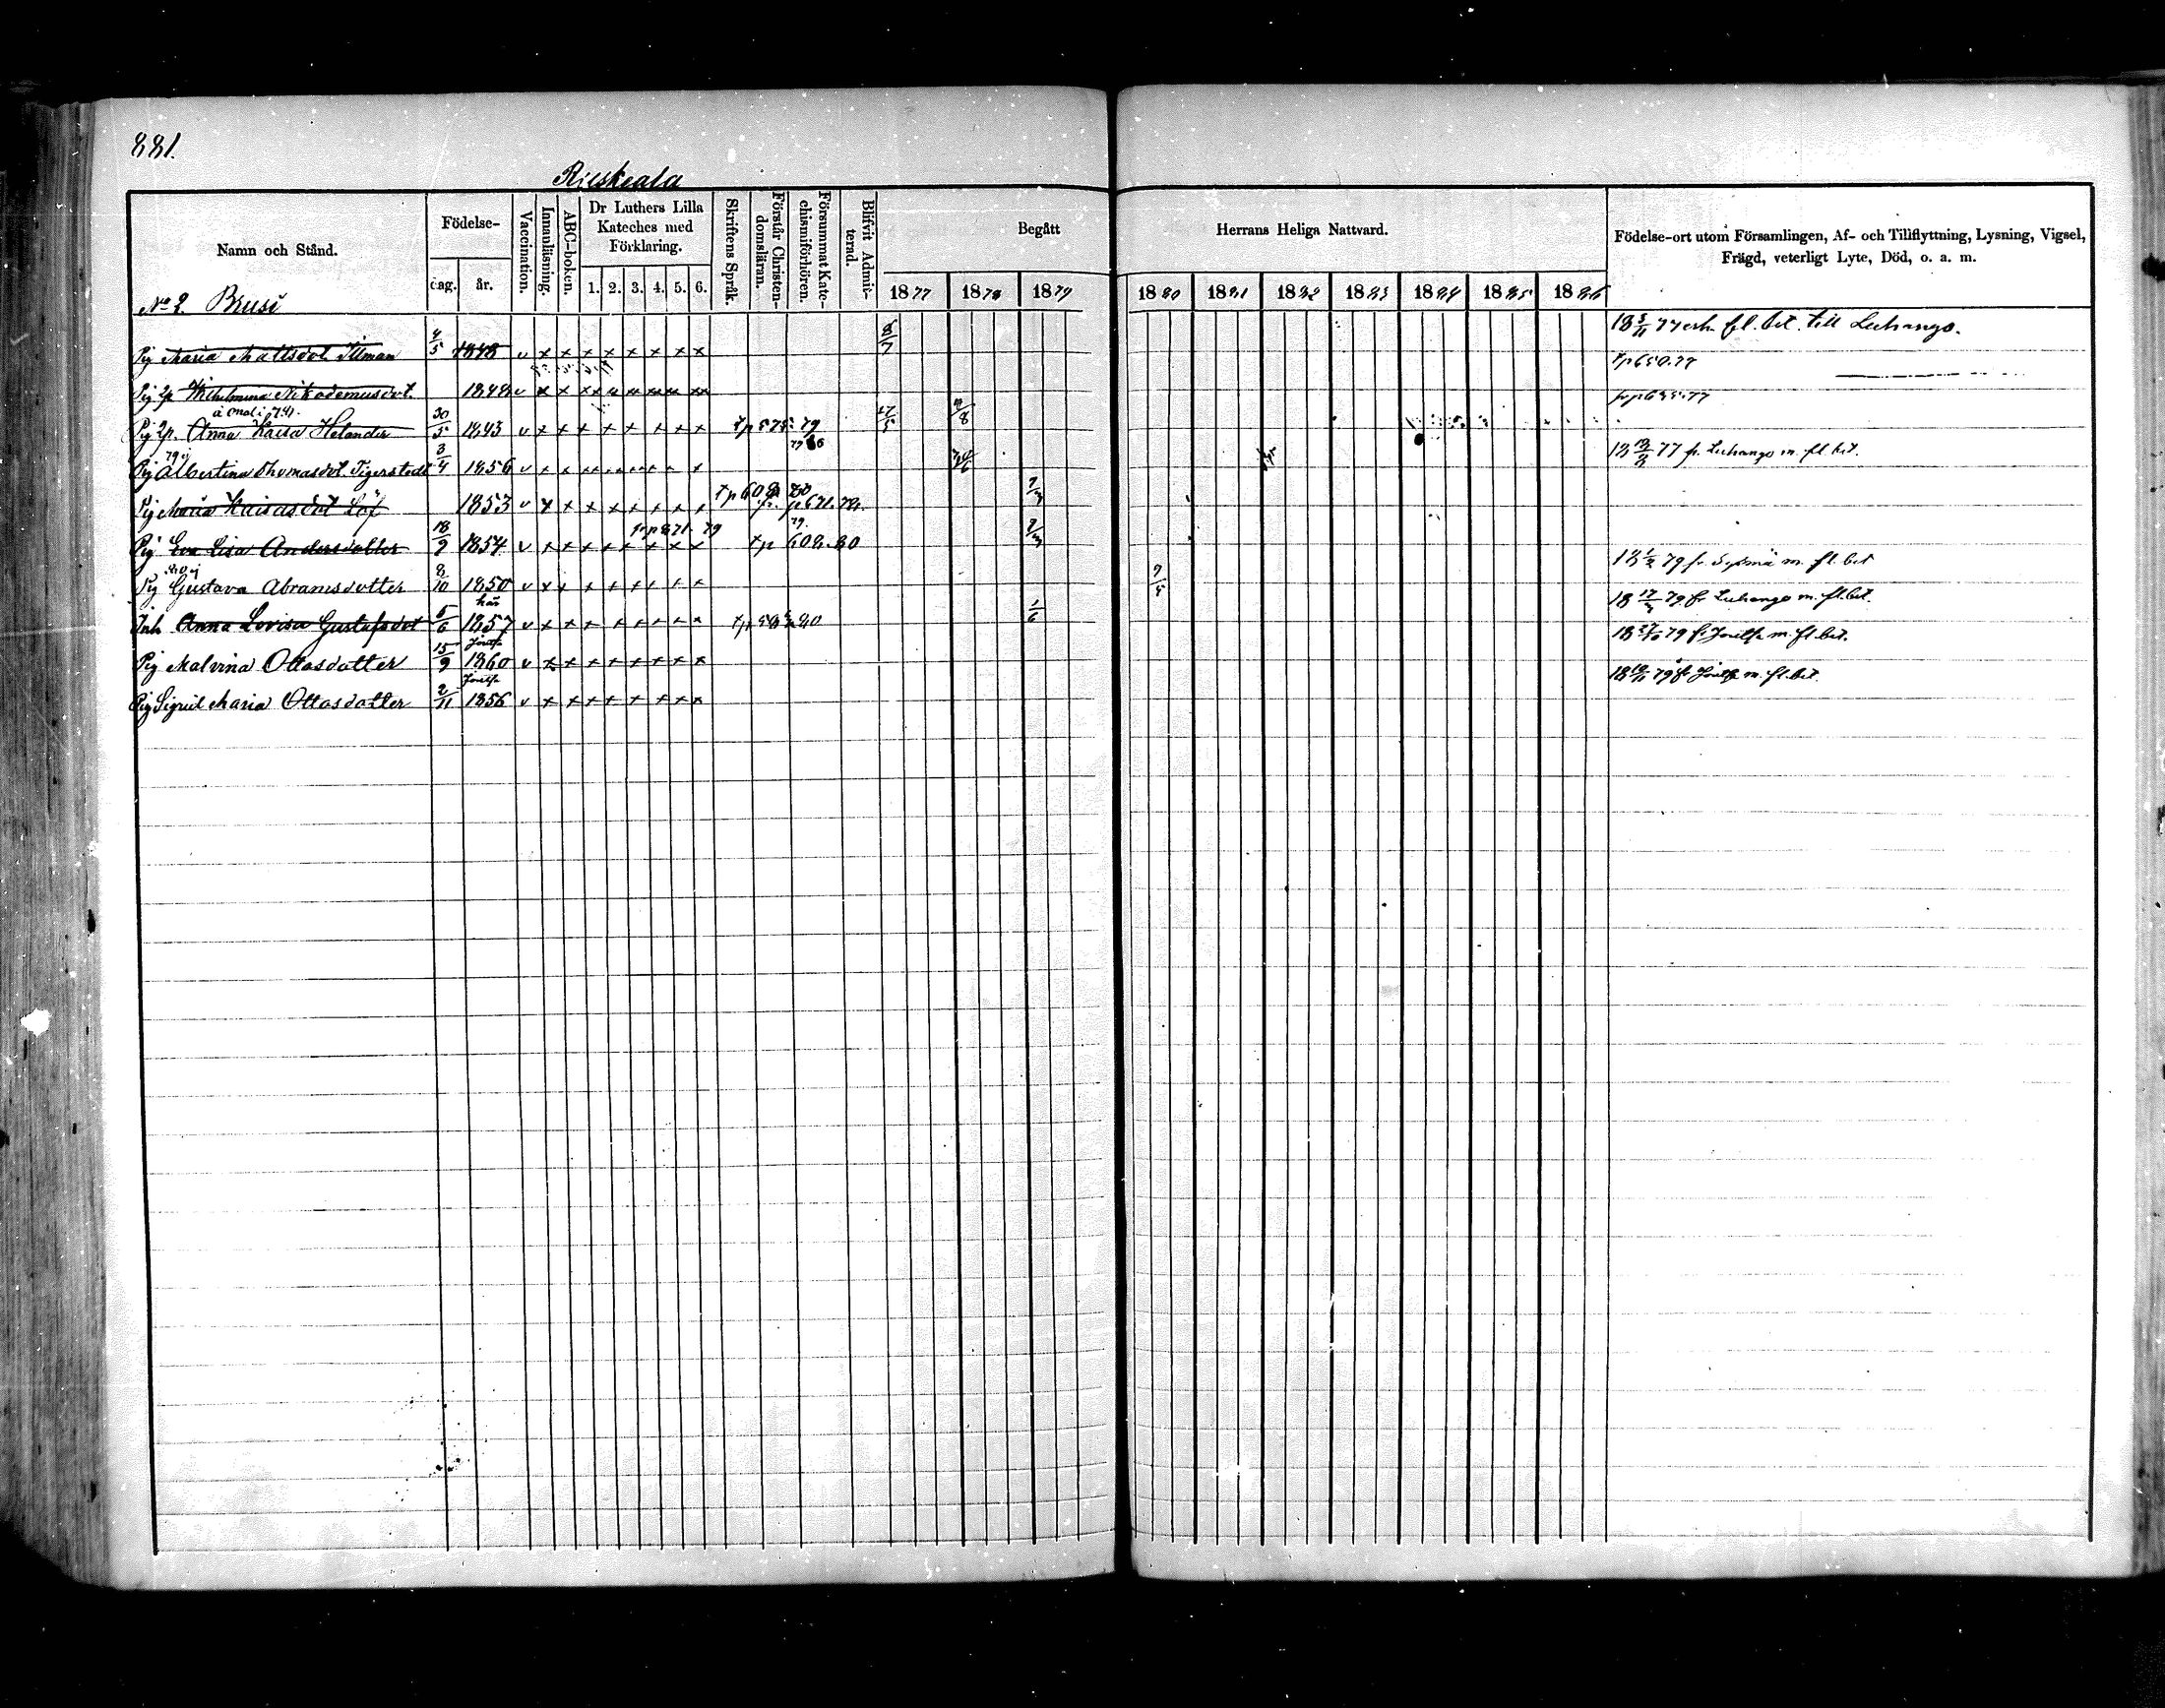 881.
Ruskeala
Namn och Stånd.
Födelse-
dag. år.
Vaccination.
Innanläsning.
ABC-boken.
Dr Luthers Lilla Kateches med Förklaring.
1. 2. 3. 4. 5. 6.
Skriftens Språk.
Förstår Christendomsläran.
Försummat Katechismiförhören.
Blifvit Admitterad.
Begått Herrans Heliga Nattvard.
1877 1878 1879 1880 1881 1882 1883 1884 1885 1886
Födelse-ort utom Församlingen, Af- och Tillflyttning, Lysning, Vigsel,
Frägd, veterligt Lyte, Död, o. a. m.
No 2. Brusi
Pig Maria Mattsdot Illman 4/5 1848 v x x x x x x x x 8/7 18 5/11 77 erh. fl. bet. till Luhango.
Pig 2p Wilhelmina Nikodemusdot. 1848 v x x x x tp 650.77
Pig 2p. Anna Kaisa Helander 30/5 1843 v x x x x x x x x tp 575. 79 27/5
Pig Albertina Thomasdot Tigerstedt 3/4 1856 v x x 77 fr. Luhango m. fl. bet.
Pig Maria Kaisasdot Löf 1853 v x x x x x x x x tp 602 fr. p 671.78.
Pig Eva Lisa Andersdotter 18/9 1854 v x x x x x x x x fr p 871. 79 tp 602.80
Pig Gustava Abramsdotter 8/10 1850 v x x x x x x x x 79 fr. Sysmä m. fl. bet
Inh Anna Lovisa Gustafsdot 5/6 1857 v x x x x x x x x 1/6 79 fr Luhango m. fl. bet.
Pig Malvina Ottosdotter 15/9 1860 v x x x x x x x x 79 fr Joutsa m. fl. bet.
Pig Sigrid Maria Ottosdotter 2/11 1856 v x x x x x x x x 79 fr Joutsa m. fl. bet.